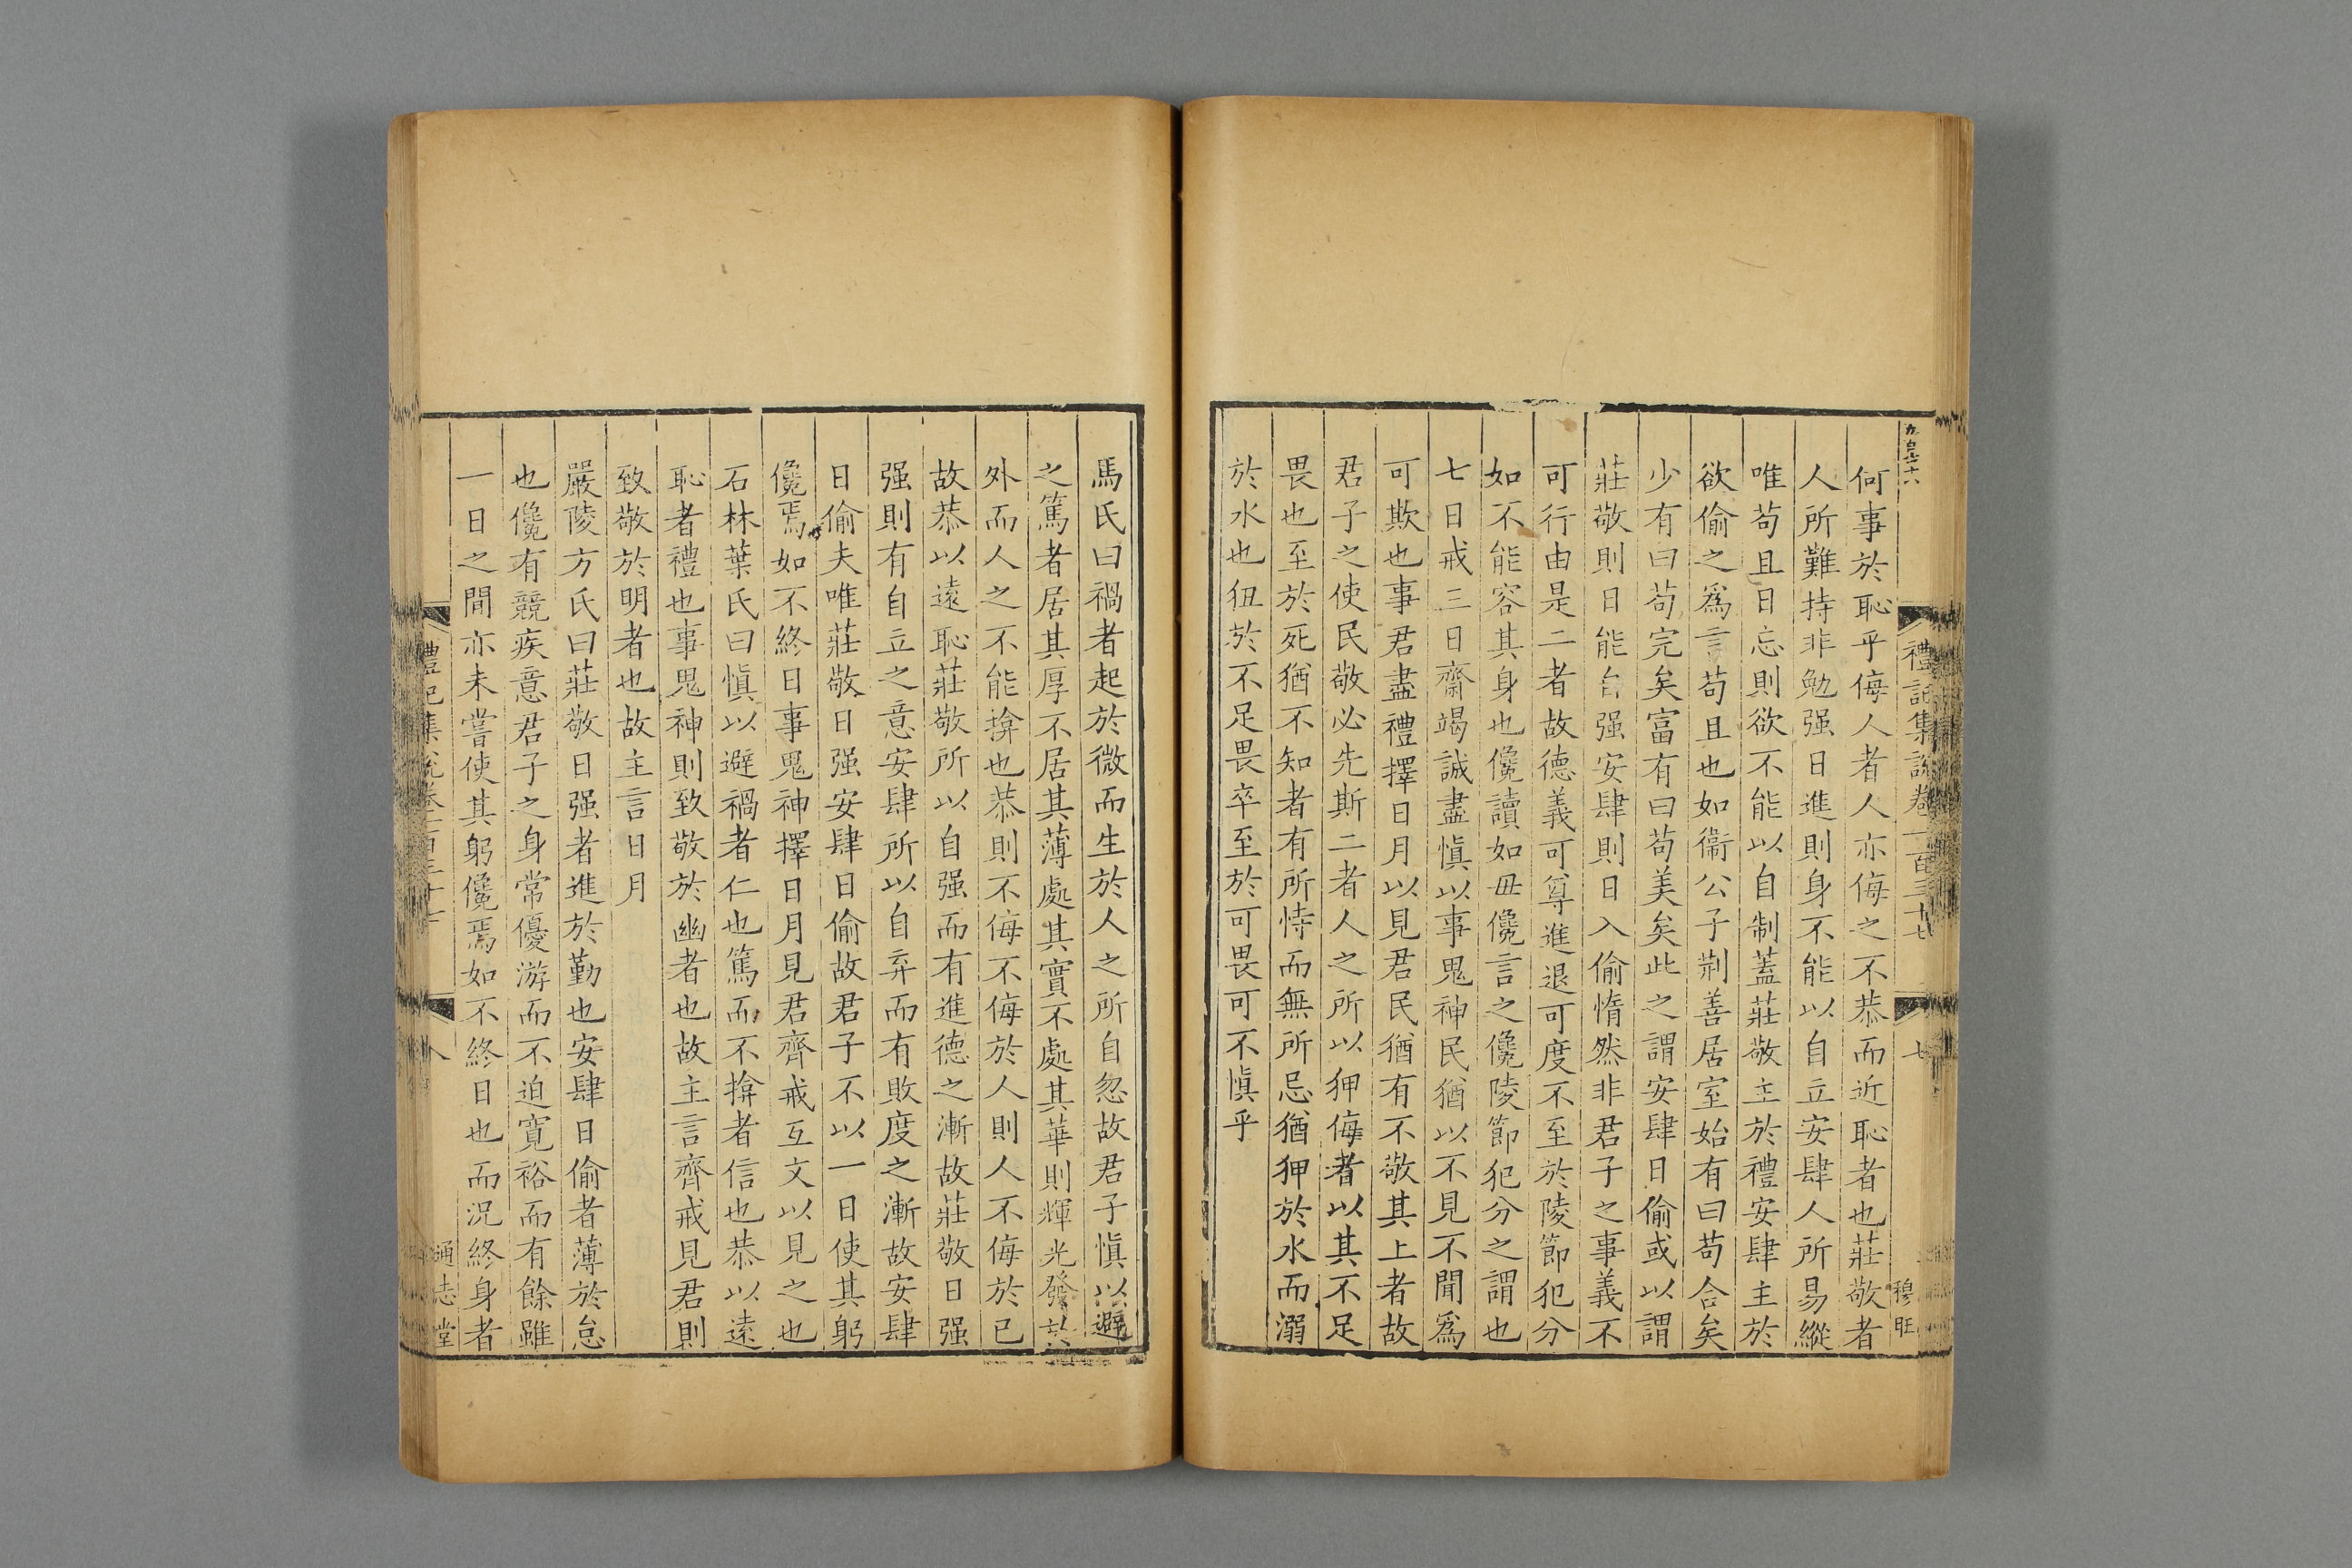 禮記集說卷一百三十七
七
穆旺
何事於恥乎侮人者人亦侮之不恭而近恥者也莊敬者
人所難持非勉强日進則身不能以自立安肆人所易縱
唯苟且日忘則欲不能以自制蓋莊敬主於禮安肆主於
欲偷之爲言苟且也如衞公子荆善居室始有曰苟合矣
少有曰苟完矣富有曰苟美矣此之謂安肆日偷或以謂
莊敬則日能自强安肆則日入偷惰然非君子之事義不
可行由是二者故德義可尊進退可度不至於陵節犯分
如不能容其身也儳讀如毋儳言之儳陵節犯分之謂也
七日戒三日齋竭誠盡愼以事鬼神民猶以不見不聞爲
可欺也事君盡禮擇日月以見君民猶有不敬其上者故
君子之使民敬必先斯二者人之所以狎侮者以其不足
畏也至於死猶不知者有所恃而無所忌猶狎於水而溺
於水也狃於不足畏卒至於可畏可不愼乎
馬氏曰禍者起於微而生於人之所自忽故君子愼以避
之篤者居其厚不居其薄處其實不處其華則輝光發於
外而人之不能揜也恭則不侮不侮於人則人不侮於已
故恭以遠恥莊敬所以自强而有進德之漸故莊敬日强
强則有自立之意安肆所以自弃而有敗度之漸故安肆
日偷夫唯莊敬日强安肆日偷故君子不以一日使其躬
儳焉如不終日事鬼神擇日月見君齊戒互文以見之也
石林葉氏曰愼以避禍者仁也篤而不揜者信也恭以遠
恥者禮也事鬼神則致敬於幽者也故主言齊戒見君則
致敬於明者也故主言日月
嚴陵方氏曰莊敬日强者進於勤也安肆日偷者薄於怠
也儳有競疾意君子之身常優游而不迫寬裕而有餘雖
一日之間亦未嘗使其躬儳焉如不終日也而況終身者
禮記集說卷一百三十七
八
通志堂